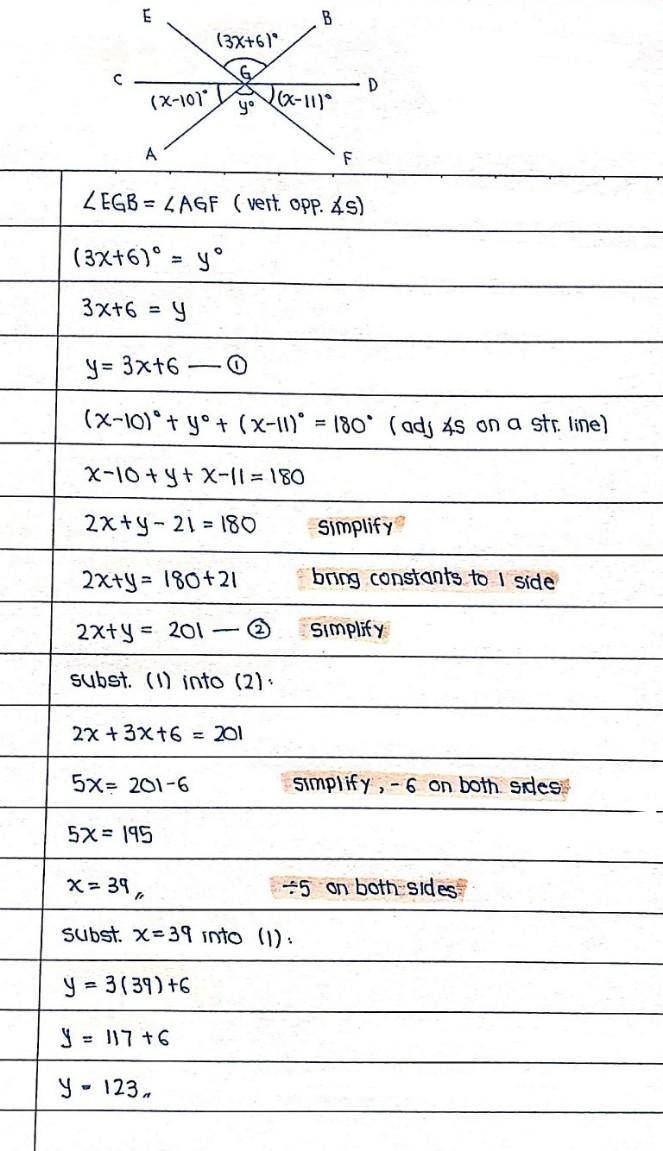 E
B
(3x+6)°
C
G
D
(x-10)°
y°
(x-11)°
A
F
∠EGB = ∠AGF (vert. opp. ∡s)
(3x+6)° = y°
3x+6 = y
y = 3x+6 — ①
(x-10)° + y° + (x-11)° = 180° (adj ∡s on a str. line)
x-10 + y + x-11 = 180
2x+y - 21 = 180 simplify
2x+y = 180+21 bring constants to 1 side
2x+y = 201 — ② simplify
subst. (1) into (2):
2x + 3x+6 = 201
5x = 201-6 simplify, -6 on both sides
5x = 195
x = 39,, ÷5 on both sides
subst. x=39 into (1):
y = 3(39)+6
y = 117 +6
y = 123,,